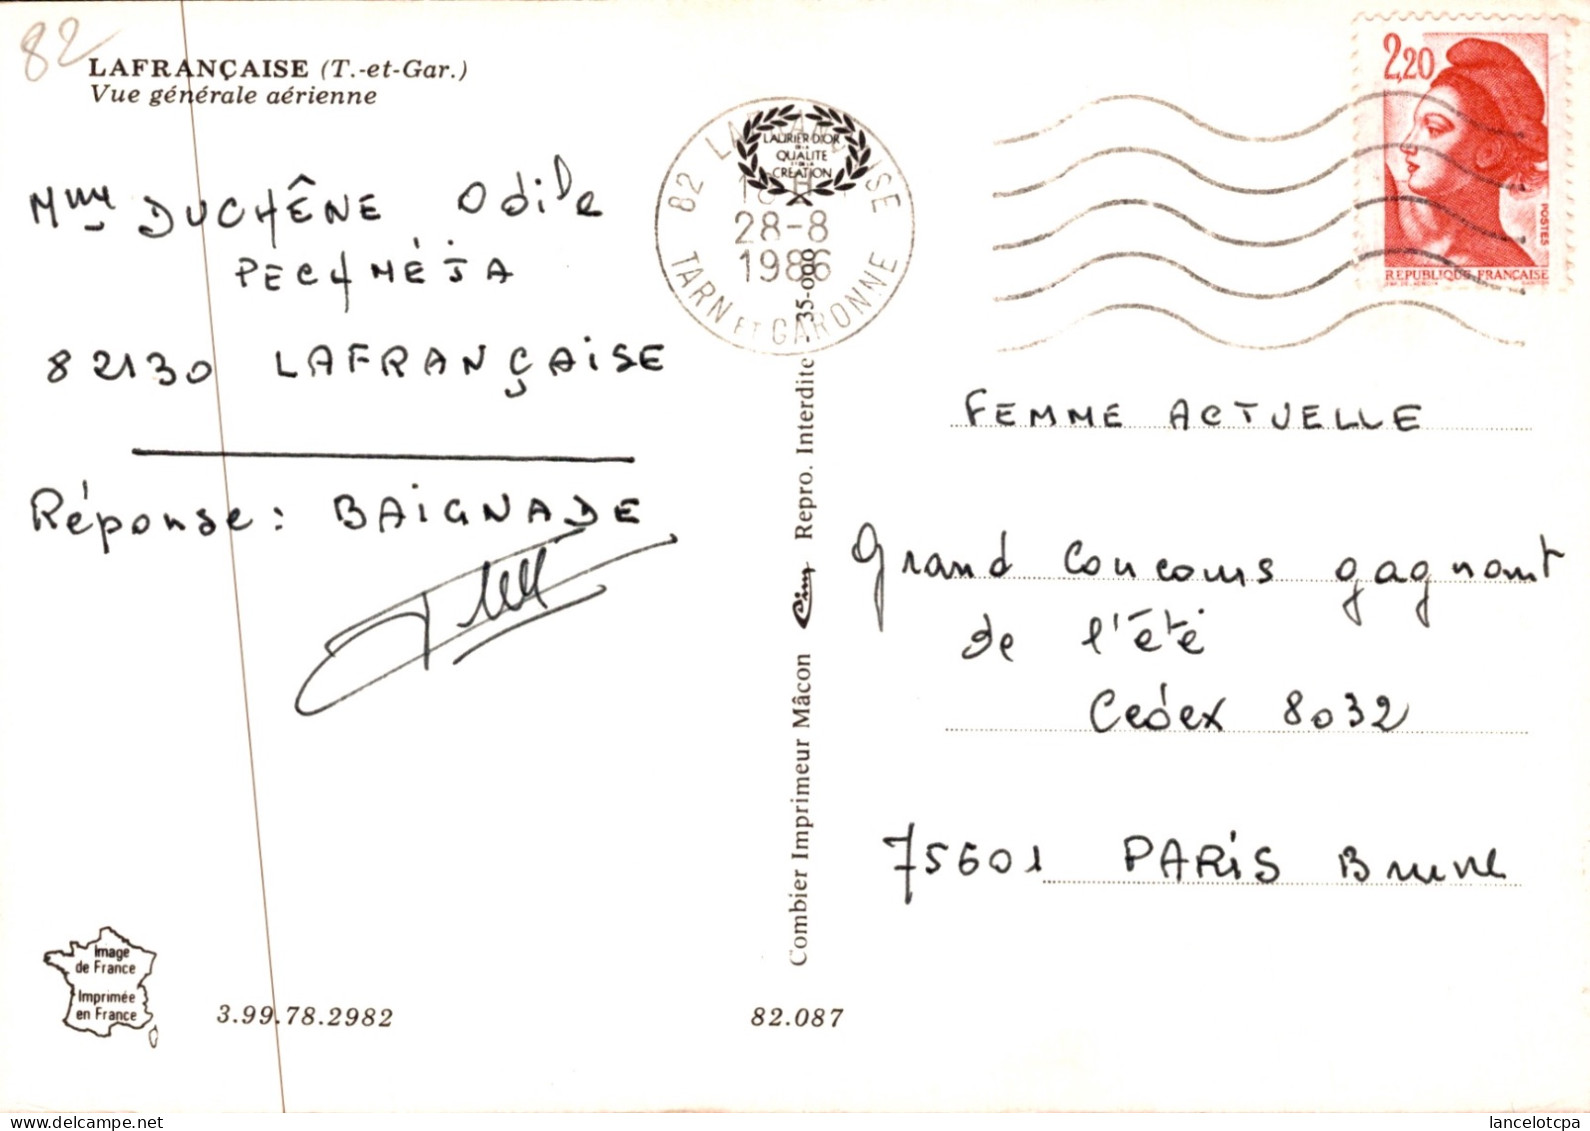 82
LAFRANÇAISE (T.-et-Gar.)
Vue générale aérienne
Mme DUCHÊNE Odile
PECHMÉJA
82130 LAFRANÇAISE
Réponse: BAIGNADE
Image
de France
Imprimée
en France
3.99.78.2982
82.087
82 LAFRANÇAISE
28-8
1986
TARN ET GARONNE
LAURIER D'OR
DE LA
QUALITE
ET DE LA
CREATION
Combier Imprimeur Mâcon Cim Repro. Interdite 35-000
2,20
POSTES
REPUBLIQUE FRANÇAISE
FEMME ACTUELLE
Grand Concours gagnant
de l'été
Cedex 8032
75601 PARIS Brune
www.delcampe.net
lancelotcpa